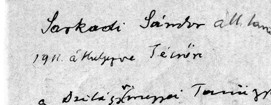 Sarkadi Sándor áll. tan
1911. áthelyezve Técsőre
a Szilágymegyei Tanügy